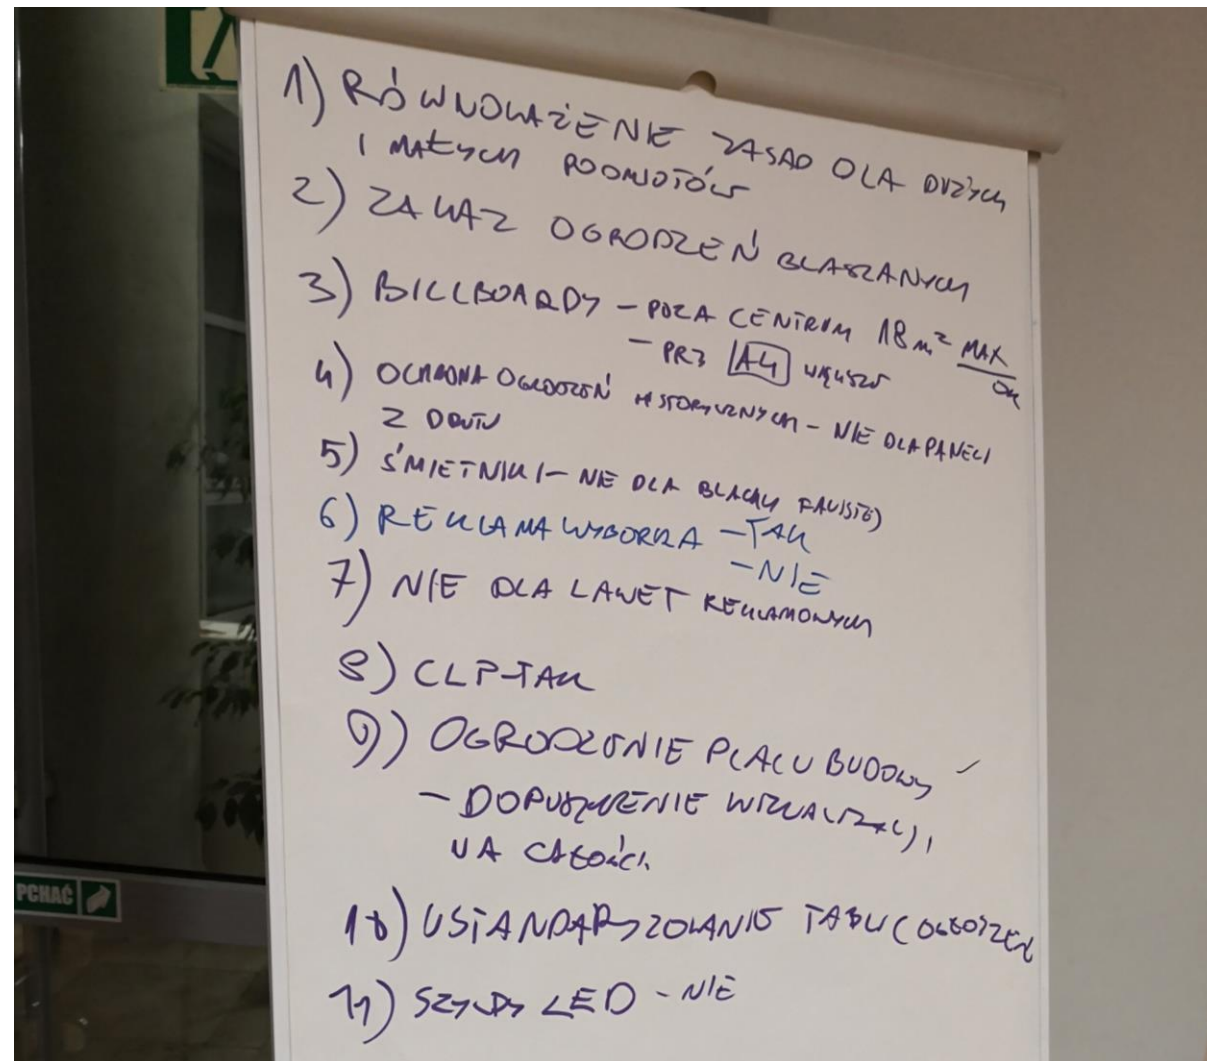 1) RÓWNOWAŻENIE ZASAD DLA DUŻYCH
I MAŁYCH PODMIOTÓW
2) ZAKAZ OGRODZEŃ BLASZANYCH
3) BILLBOARDY – POZA CENTRUM 18 m² MAX
– PRZ A4 WIĘKSZE OK
4) OCHRONA OGRODZEŃ HISTORYCZNYCH – NIE DLA PANELI
Z DRUTU
5) ŚMIETNIKI – NIE DLA BLACHY FALISTEJ
6) REKLAMA WYBORCZA – TAK
– NIE
7) NIE DLA LAWET REKLAMOWYCH
8) CLP – TAK
9) OGRODZENIE PLACU BUDOWY
– DOPUSZCZENIE WIZUALIZACJI
NA CAŁOŚCI
PCHAĆ
10) USTANDARYZOWANIE TABLIC OGŁOSZEŃ
11) SZYLDY LED – NIE